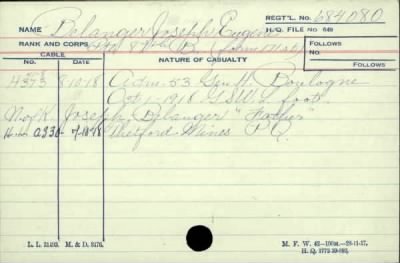 REGT'L. No. 684080
NAME Belanger Joseph Eugene
H. Q. FILE No 649
RANK AND CORPS
CABLE
NO. DATE
NATURE OF CASUALTY
FOLLOWS
No.
FOLLOWS
4373 8-10-18 Adm. 53 Gen. H. Boulogne
Oct 1-1918 GSW foot.
N. of K. Joseph Belanger "Father"
7-10-18 Thetford Mines P.Q.
L. L. M. & D. 8476.
M. F. W. 42-100M.-28-11-17.
H. Q. 1772-39-893.